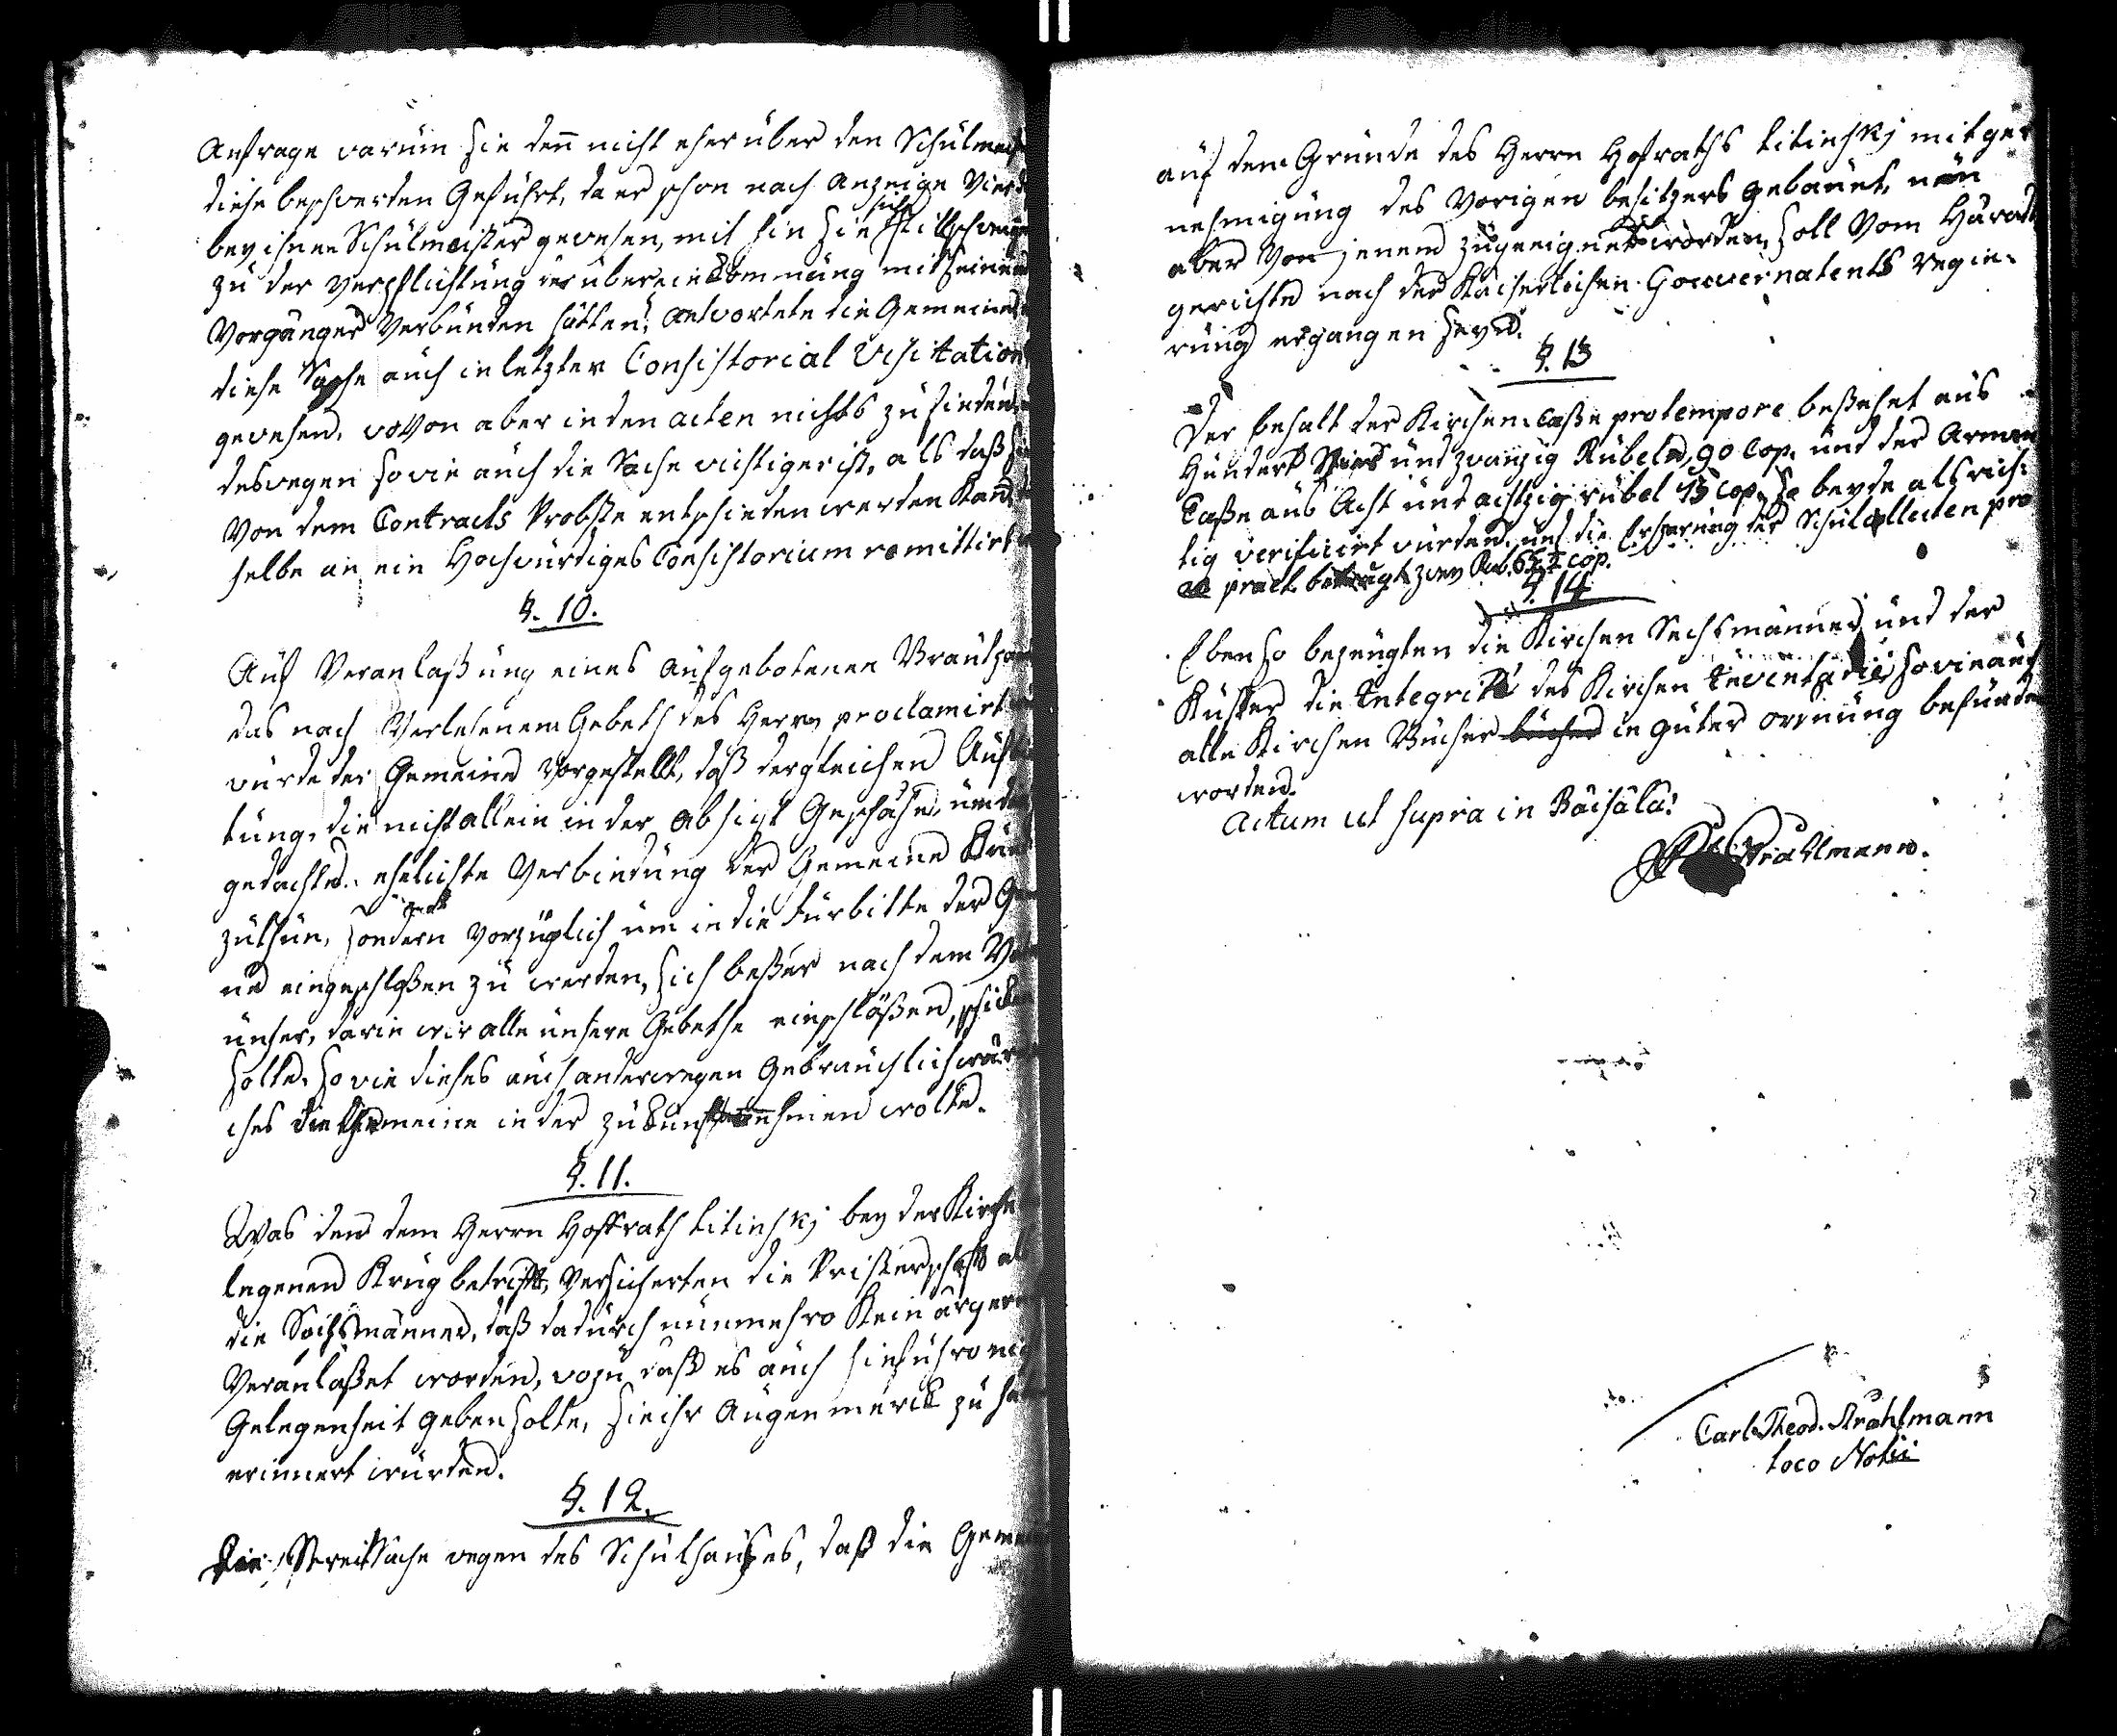 Anfrage warum sie denn nicht eher über den Schulmeist
diese beschwerden Geführt, da er schon nach Anzeige Vier
bey ihnen Schulmeister gewesen, mit hin sie sich Stillschweigen
zu der Verpflichtung der übereinkommung mit seinem
Vorgänger Verbunden hätten, antwortete die Gemeine
diese Sache auch in letzter Consistorial Visitation
gewesen, wovon aber in den acten nichts zu finden
deswegen sowie auch die Sache wichtiger ist, als daß sie
Von dem Contracts Probste entschieden werden kan
selbe an ein Hochwürdiges Consistorium remittirt
§. 10.
Auf Veranlaßung eines aufgebotenen Brautpaar
das nach Verlesenem Gebeth des Herrn proclamirt
wurde der Gemeine Vorgestellt, daß dergleichen Aufbie
tung, die nicht allein in der absicht Geschähe, um
gedachte ehelichte Verbindung der Gemeine Kund
zuthun, sondern Vorzüglich um in die Fürbitte der Gemei
ne eingeschloßen zu werden, sich beßer nach dem Vater
unser, darin wir alle unsere Gebethe einschlößen, schicken
solte, so wie dieses auch anderwegen Gebräuchlich wäre
ches die Gemeine in der zukunft annehmen wolte.
§. 11.
Was den dem Herrn Hoffrath Litinskj bey der Kirche
legenen Krug betrifft, Versicherten die Pristerschaft als
die Sechsmänner, daß dadurch nunmehro Kein ärger
Veranlaßet worden, wozu daß es auch hinführo nicht
Gelegenheit geben solte, sie ihr Augenmerck zu haben
erinnert wurden.
§. 12.
Die Streitsache wegen des Schulhauses, daß die Gemeine
auf dem Grunde des Herrn Hofraths Litinskj mit ge
nehmigung des Vorigen besitzers Gebauet, nun
aber Von jenem zugeeignet worden, soll Vom Härads
gerichte nach der Kaiserlichen Gouvernaments Regie-
rung ergangen seyn.
§. 13
Der behalt der Kirchen Caße pro tempore bestehet aus
Hundert Vier und zwanzig Rubeln, 90 Cop. und der Armen
Caße aus Acht und achtzig rubel 45 Cop, so beyde als rich-
tig verificirt wurden, und die Ersparung der Schulcollecten pro
praet. beträgt zwey Rub. 6 1/2 cop.
§. 14
Eben so bezeugten die Kirchen Sechsmänner und der
Küster die Integrité des Kirchen Inventarii, sowie auch
alle Kirchen Bücher bücher in guter ordnung befunden
worden.
Actum ut supra in Räisälä.
Strahlmann.
Carl Theod. Strahlmann
loco Notii